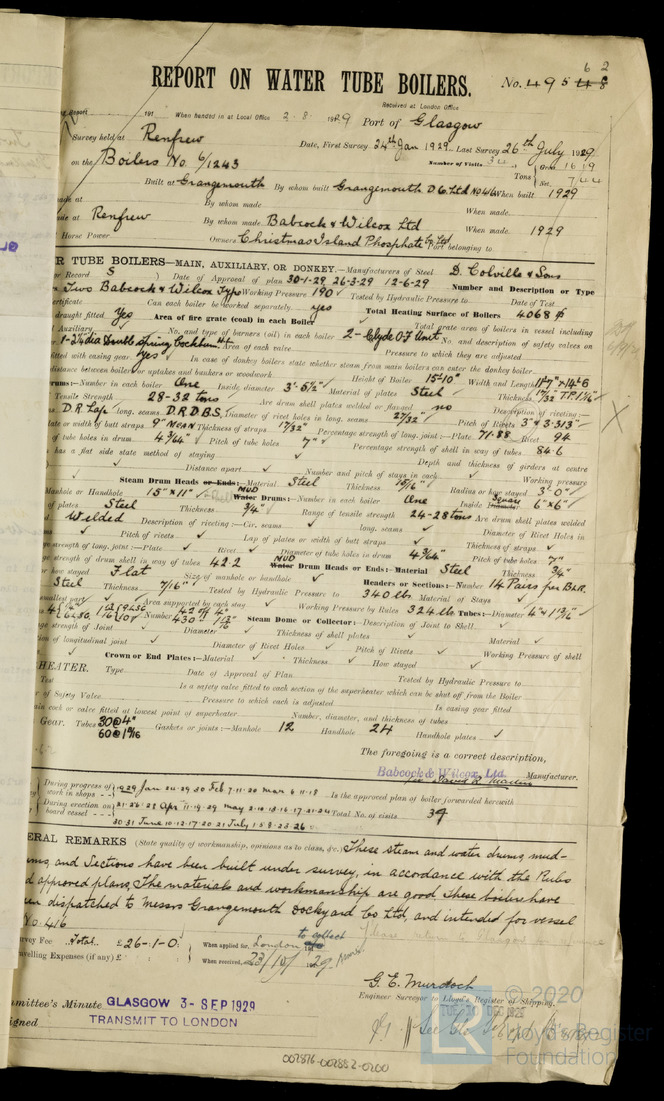 6 2
REPORT ON WATER TUBE BOILERS. No. 4954 8
Received at London Office
Report 191 When handed in at Local Office 2.8.1929 Port of Glasgow
Survey held at Renfrew Date, First Survey 24th Jan 1929 Last Survey 26th July 1929
on the Boilers No 6/1243 Number of Visits Gross 1619
Tons Net 700
Built at Grangemouth By whom built Grangemouth D.Co. Ltd No 416 When built 1929
made at By whom made When made
made at Renfrew By whom made Babcock & Wilcox Ltd When made 1929
Horse Power Owners Christmas Island Phosphate Co. Ltd Port belonging to
R TUBE BOILERS—MAIN, AUXILIARY, OR DONKEY.—Manufacturers of Steel D. Colville & Sons
or Record S ) Date of Approval of plan 30-1-29, 26-3-29 12-6-29 Number and Description or Type
Two Babcock & Wilcox Type Working Pressure 190 Tested by Hydraulic Pressure to Date of Test
ertificate Can each boiler be worked separately yes Total Heating Surface of Boilers 4068
draught fitted Yes Area of fire grate (coal) in each Boiler Total grate area of boilers in vessel including
Auxiliary No. and type of burners (oil) in each boiler 2 - Clyde O.F. Unit No. and description of safety valves on
1-2¼ dia Double spring Cockburn Area of each valve Pressure to which they are adjusted
fitted with easing gear Yes In case of donkey boilers state whether steam from main boilers can enter the donkey boiler
distance between boiler or uptakes and bunkers or woodwork Height of Boiler 15'-10" Width and Length 11'-7" x 14'-6
rums:—Number in each boiler One Inside diameter 3'-5½" Material of plates Steel Thickness 17/32 T.P. 1 1/16"
Tensile Strength 28-32 tons Are drum shell plates welded or flanged no Description of riveting:—
D.R Lap long. seams D.R.D.B.S. Diameter of rivet holes in long. seams 27/32" Pitch of Rivets 3" & 3.313"
late or width of butt straps 9" MEAN Thickness of straps 17/32" Percentage strength of long. joint:—Plate 71.88 Rivet 94
of tube holes in drum 4 3/64" Pitch of tube holes 7" Percentage strength of shell in way of tubes 84.6
has a flat side state method of staying Depth and thickness of girders at centre
Distance apart Number and pitch of stays in each Working pressure
Steam Drum Heads or Ends:—Material Steel Thickness 15/16" Radius or how stayed 3'-0"
Manhole or Handhole 15" x 11" MUD Water Drums:—Number in each boiler One Inside Square 6"x6"
of plates Steel Thickness ¾" Range of tensile strength 24-28 tons Are drum shell plates welded
Welded Description of riveting:—Cir. seams long. seams Diameter of Rivet Holes in
Pitch of rivets Lap of plates or width of butt straps Thickness of straps
ge strength of long. joint:—Plate Rivet Diameter of tube holes in drum 4 3/64" Pitch of tube holes 7"
ge strength of drum shell in way of tubes 42.2 MUD Water Drum Heads or Ends:—Material Steel Thickness ¾"
or how stayed Flat Size of manhole or handhole Headers or Sections:—Number 14 Pairs per BLR.
Steel Thickness 7/16" Tested by Hydraulic Pressure to 340 lbs Material of Stays
Area supported by each stay Working Pressure by Rules 324 lbs Tubes:—Diameter 4" & 1 13/16"
Number Steam Dome or Collector:—Description of Joint to Shell
ge strength of Joint Diameter Thickness of shell plates Material
of longitudinal joint Diameter of Rivet Holes Pitch of Rivets Working Pressure of shell
Crown or End Plates:—Material Thickness How stayed
HEATER. Type Date of Approval of Plan Tested by Hydraulic Pressure to
Test Is a safety valve fitted to each section of the superheater which can be shut off from the Boiler
of Safety Valve Pressure to which each is adjusted Is easing gear fitted
ain cock or valve fitted at lowest point of superheater Number, diameter, and thickness of tubes
Gear. Tubes 30@4" Gaskets or joints:—Manhole 12 Handhole 24 Handhole plates
60@1 13/16
The foregoing is a correct description,
Babcock & Wilcox, Ltd. Manufacturer.
During progress of work in shops - - 1929 Jan 24.29.30 Feb 7.11.20 Mar 6.11.18 Is the approved plan of boiler forwarded herewith
During erection on board vessel - - - 21.26.28 Apr 11.19.29 May 2.10.13.14.17.21.24 Total No. of visits 34
30.31 June 10.12.17.20.21 July 1.5.9.23.26
ERAL REMARKS (State quality of workmanship, opinions as to class, &c. These steam and water drums, mud-
ums, and Sections have been built under survey, in accordance with the Rules
d approved plans, The materials and workmanship are good These boilers have
een dispatched to Messrs Grangemouth Dockyard Co Ltd, and intended for vessel
No. 416
to collect
rvey Fee ... Total. £ 26-1-0 When applied for, London
velling Expenses (if any) £ When received, 23/10/1929
G. E. Murdoch
Engineer Surveyor to Lloyd's Register of Shipping.
mmittee's Minute GLASGOW 3-SEP 1929
signed TRANSMIT TO LONDON
TUE. 10 DEC 1929
© 2020
LR
Lloyd's Register
Foundation
002876-002882-0200